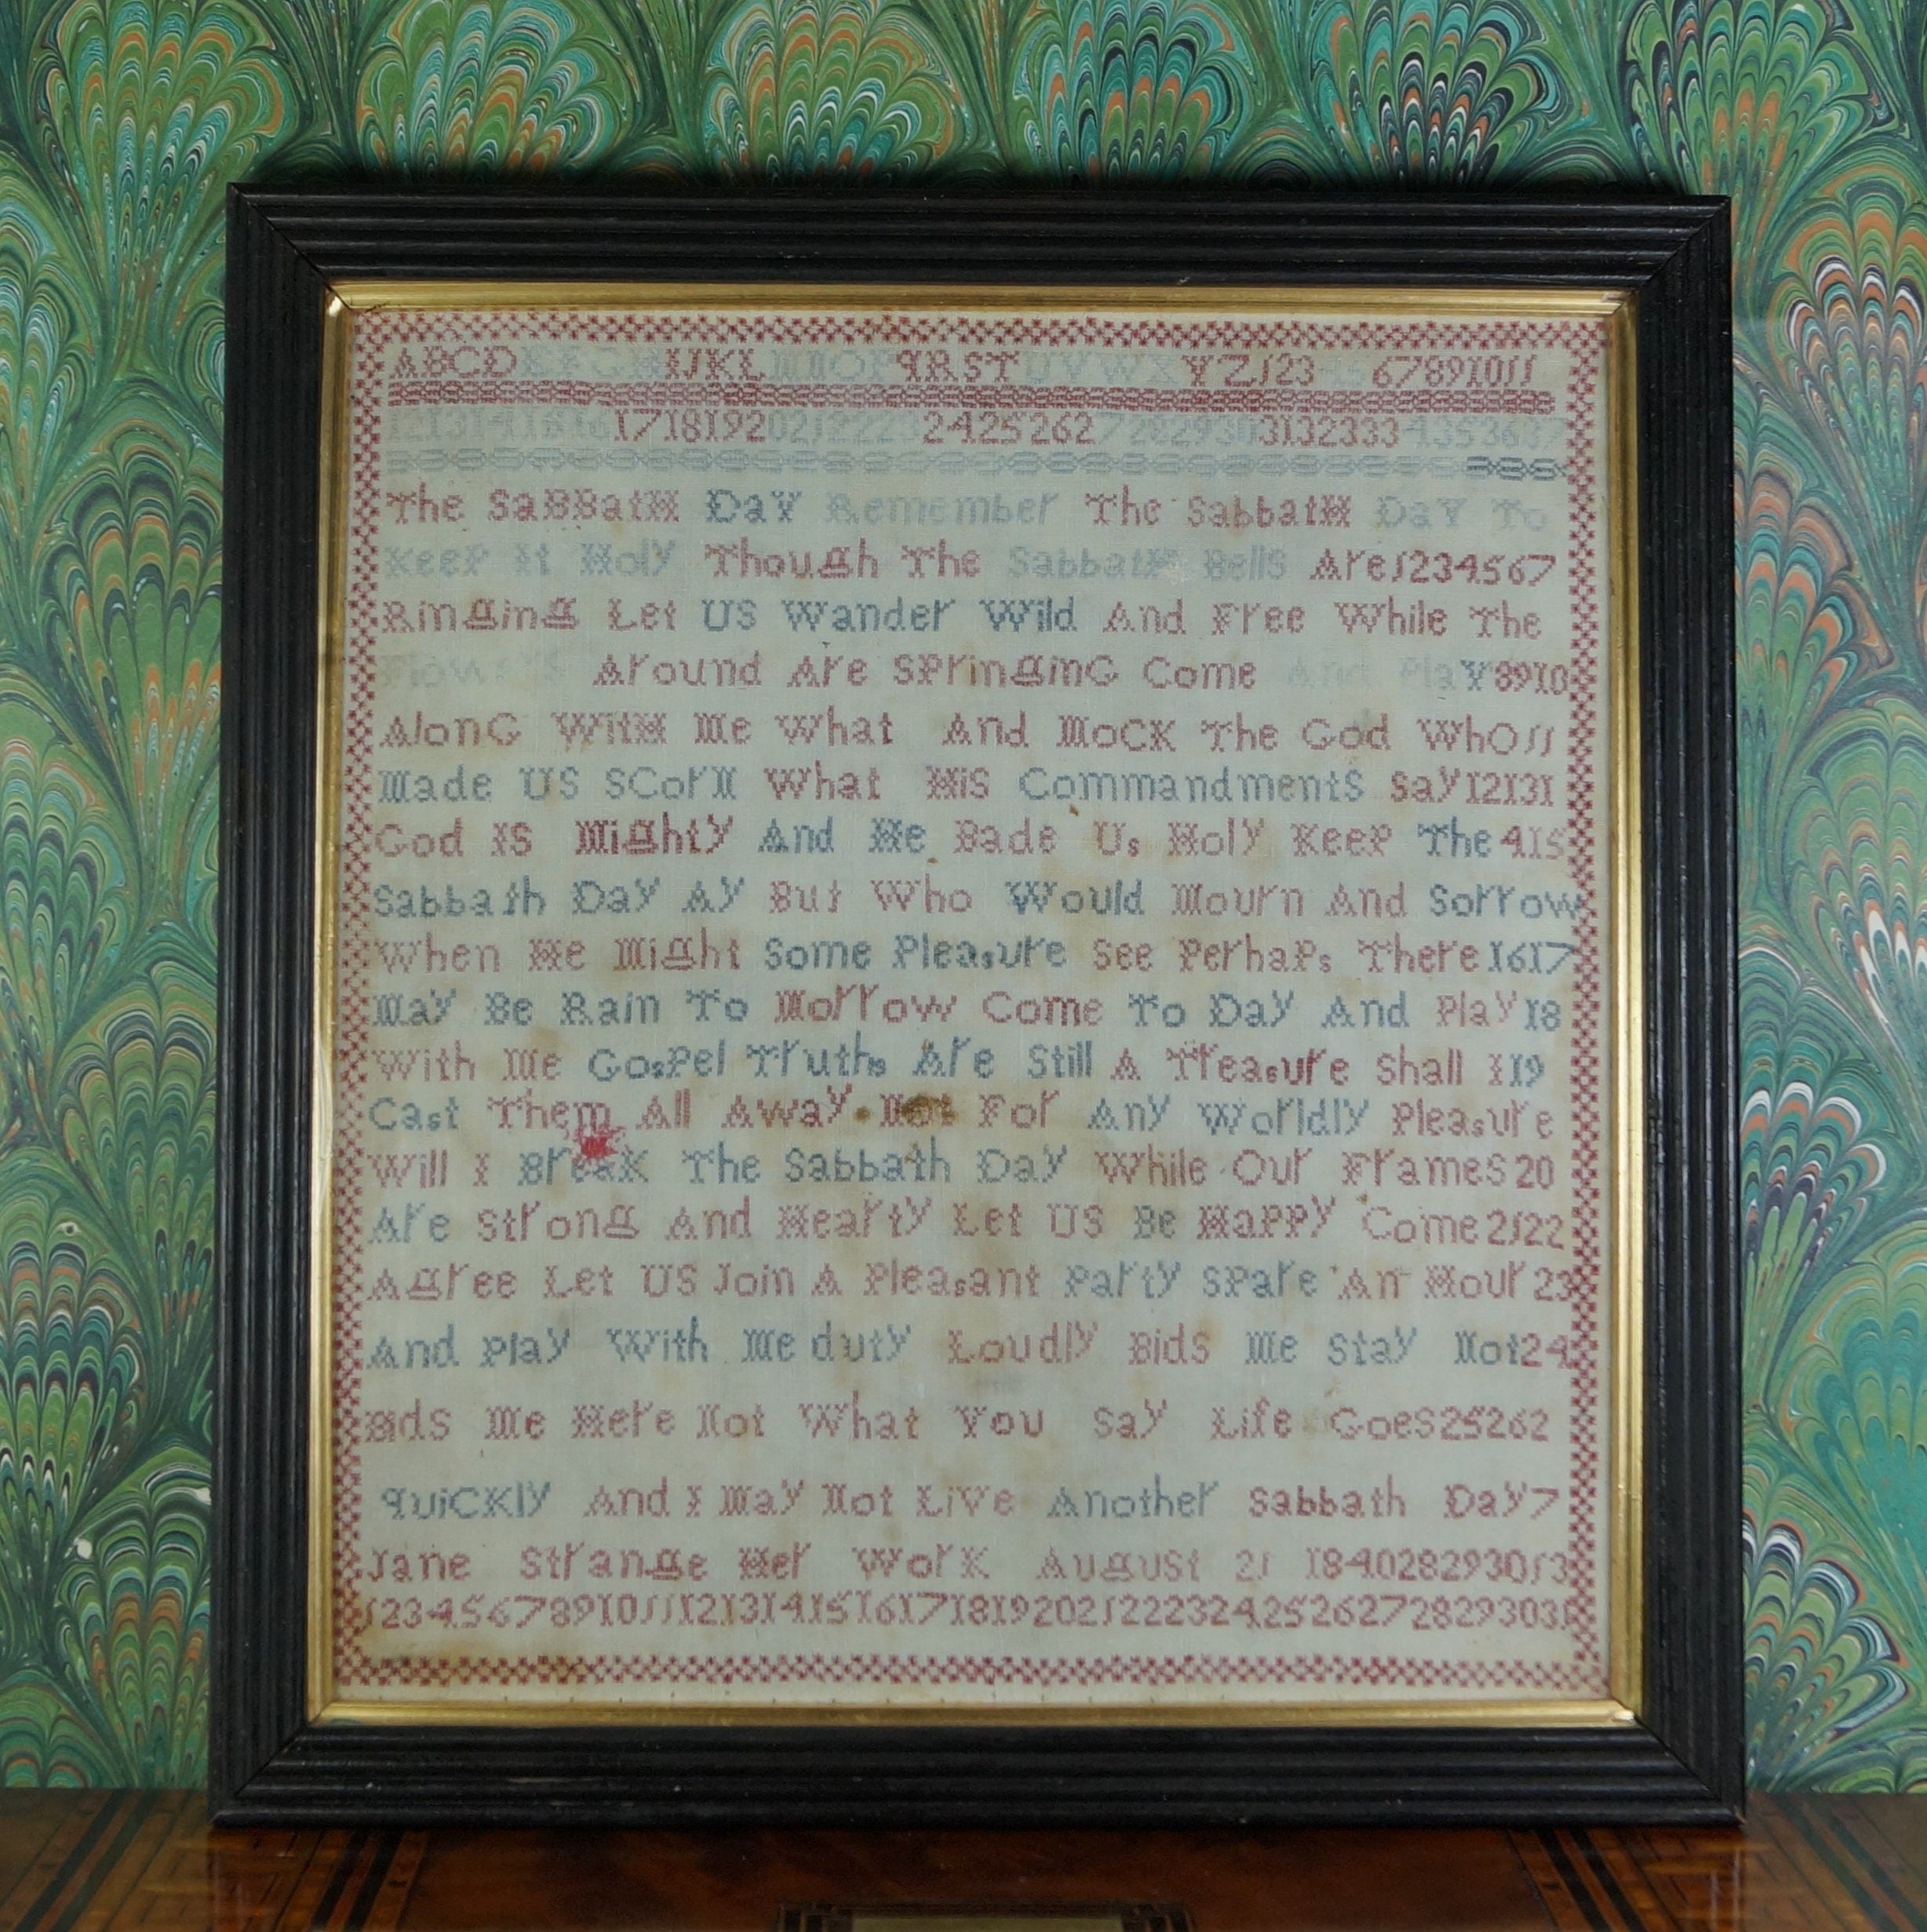 ABCDEFGHIJKLMNOPQRSTUVWXYZ1234567891011
1213141516171819202122232425262728293031323334353637
The SaBBatH DaY Remember The SabbatH DaY To
KeeP It Holy Though The SabbatH BellS Are1234567
Ringing Let US Wander Wild And Free While The
FlowerS Around Are SPringinG Come And PlaY8910
AlonG WitH Me What And MoCK The God WhO11
Made US SCorN What HiS CommandmentS Say12131
God IS Mighty And He Bade Us Holy KeeP The415
Sabbath Day Ay But Who Would Mourn And Sorrow
When He Might Some Pleasure See PerhaPs There1617
May Be Rain To Morrow Come To Day And Play18
With Me GosPel Truths Are Still A Treasure Shall I19
Cast Them All Away Not For Any Worldly Pleasure
Will I BreaK The Sabbath Day While Our FrameS20
Are Strong And Hearty Let US Be HaPPy Come2122
Agree Let US Join A Pleasant Party SPare An Hour23
And Play With Me duty Loudly BidS Me Stay Not24
BidS Me Here Not What You Say Life GoeS25262
quiCKly And I May Not Live Another Sabbath Day7
Jane Strange Her WorK AuguSt 21 184028293013
12345678910111213141516171819202122232425262728293031